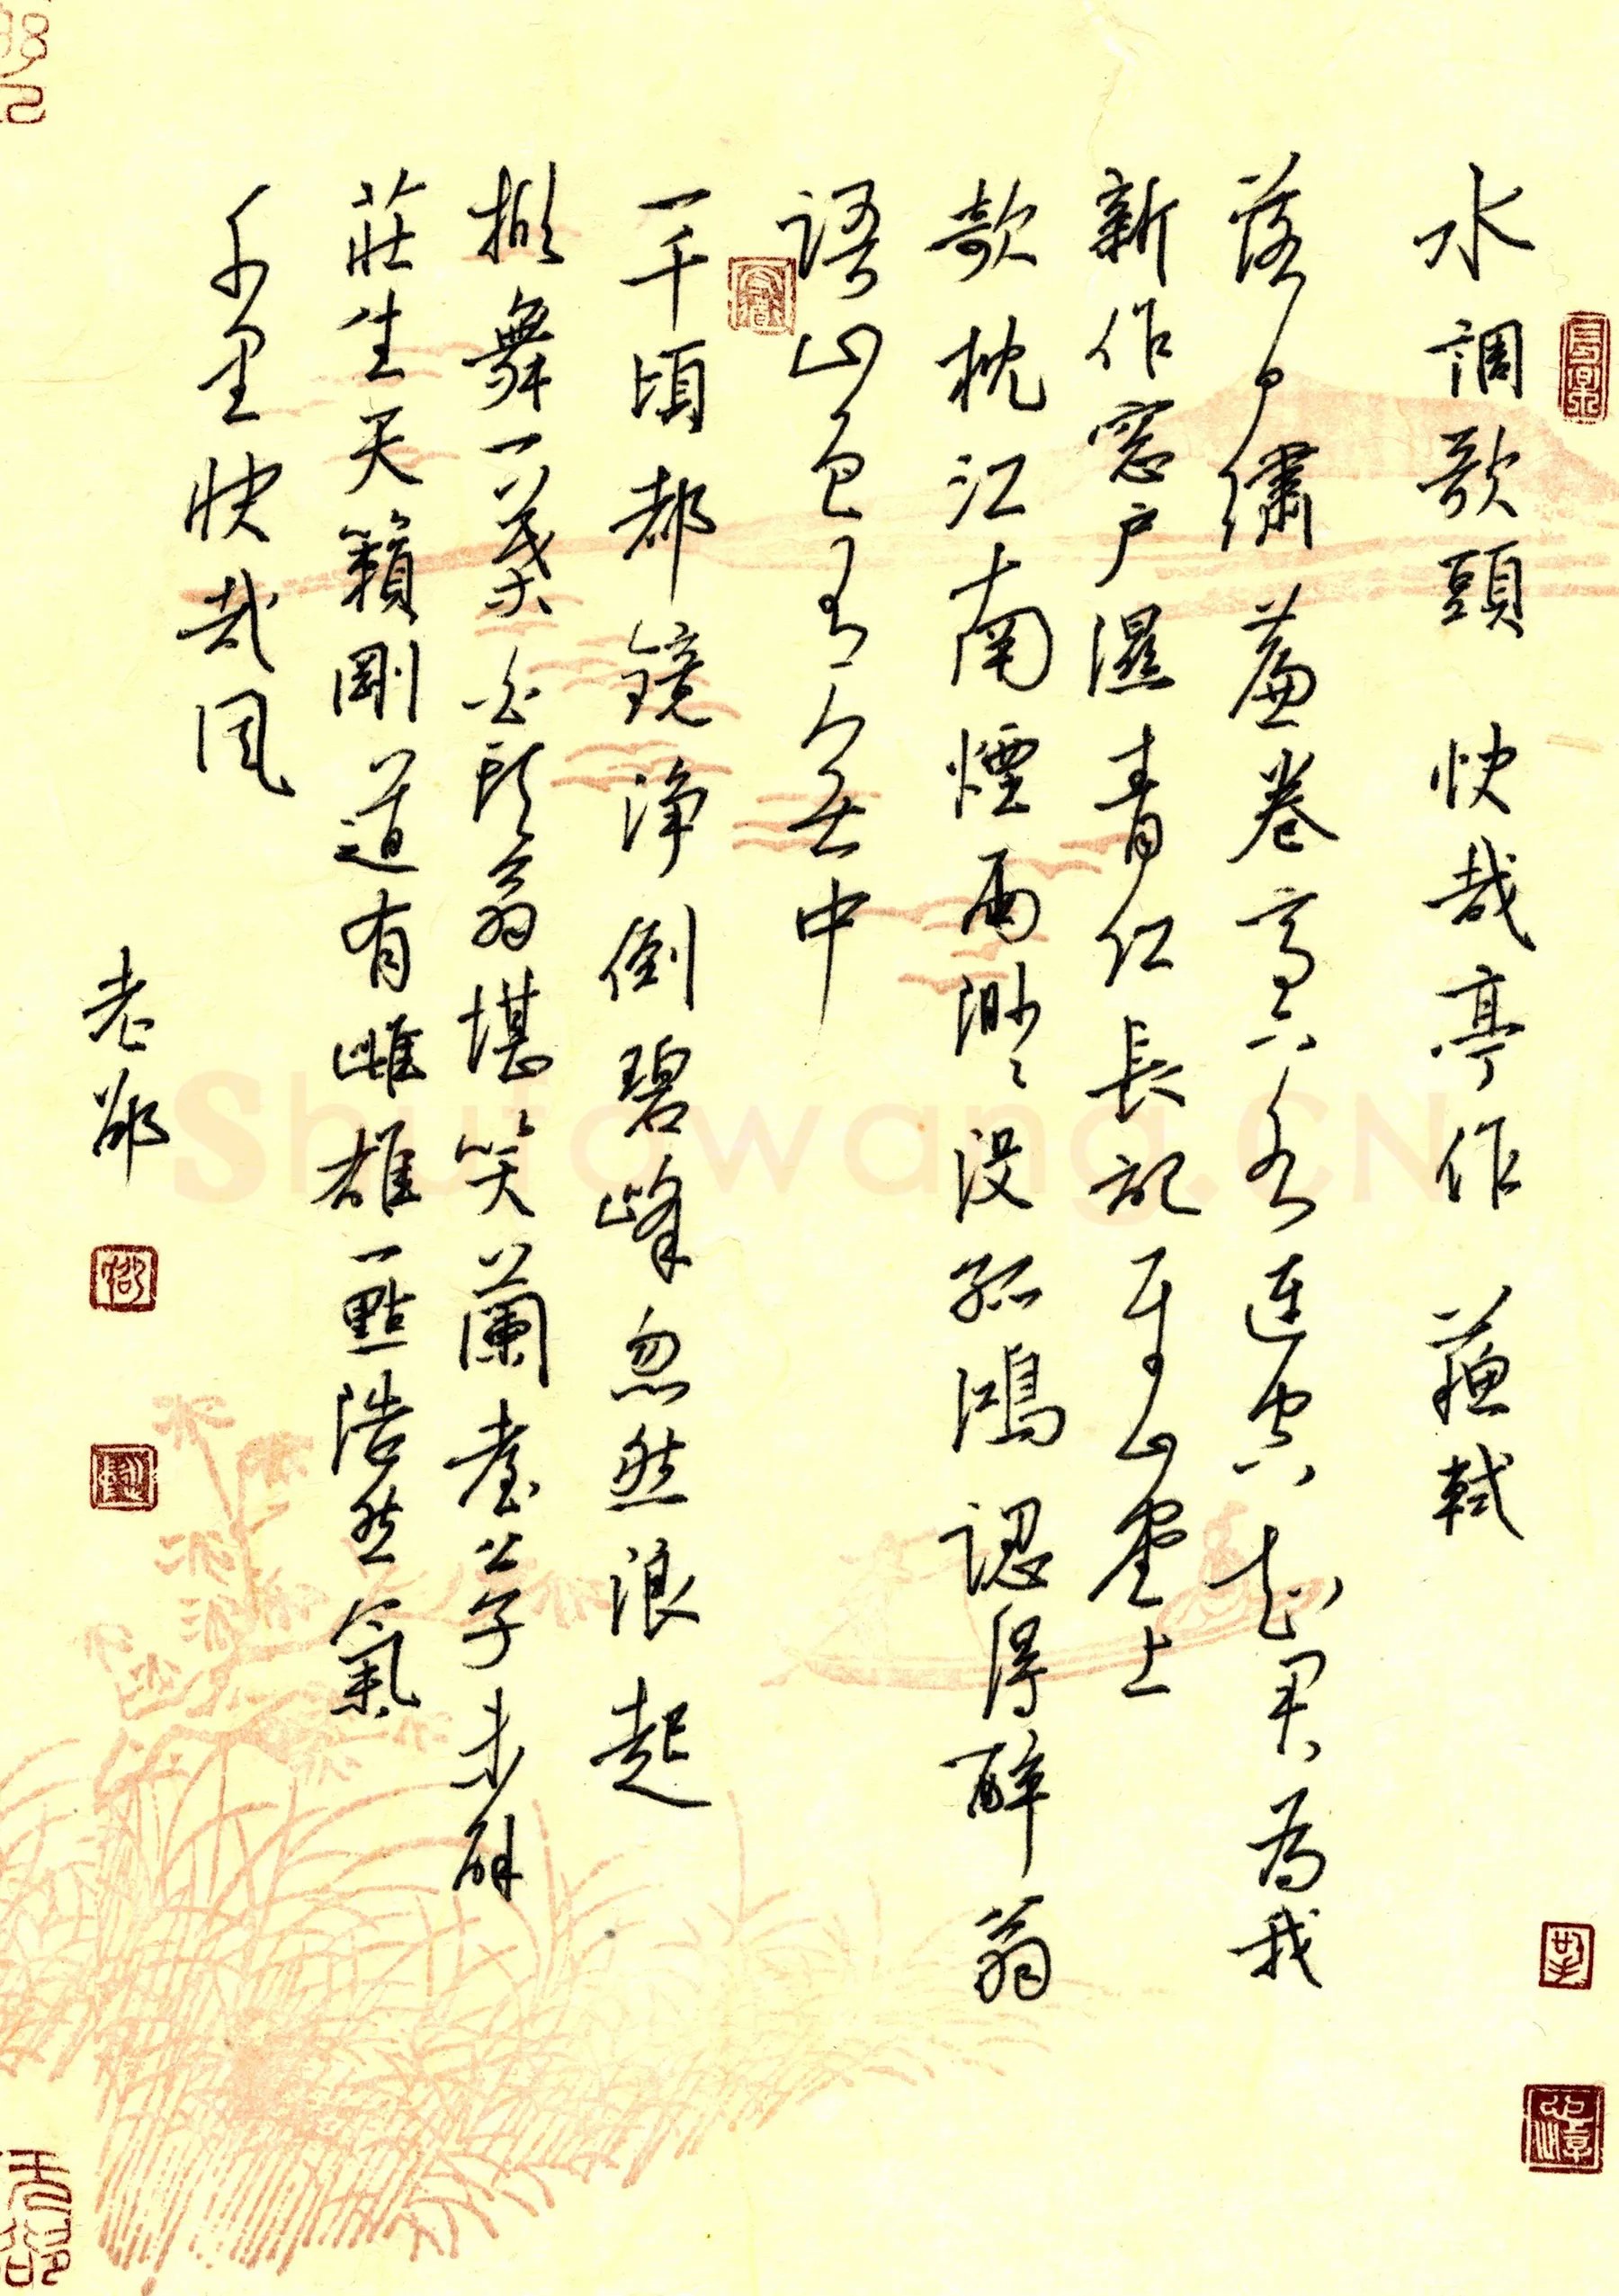 水調歌頭 快哉亭作 蘇軾
落日繡簾卷亭下水連空知君為我
新作窓戶濕青紅長記平山堂上
欹枕江南煙雨渺々沒孤鴻認得醉翁
語山色有無中
一千頃都鏡淨倒碧峰忽然浪起
掀舞一葉白頭翁堪笑蘭臺公子未解
莊生天籟剛道有雌雄一點浩然氣
千里快哉風
老邵
Shufawang.CN